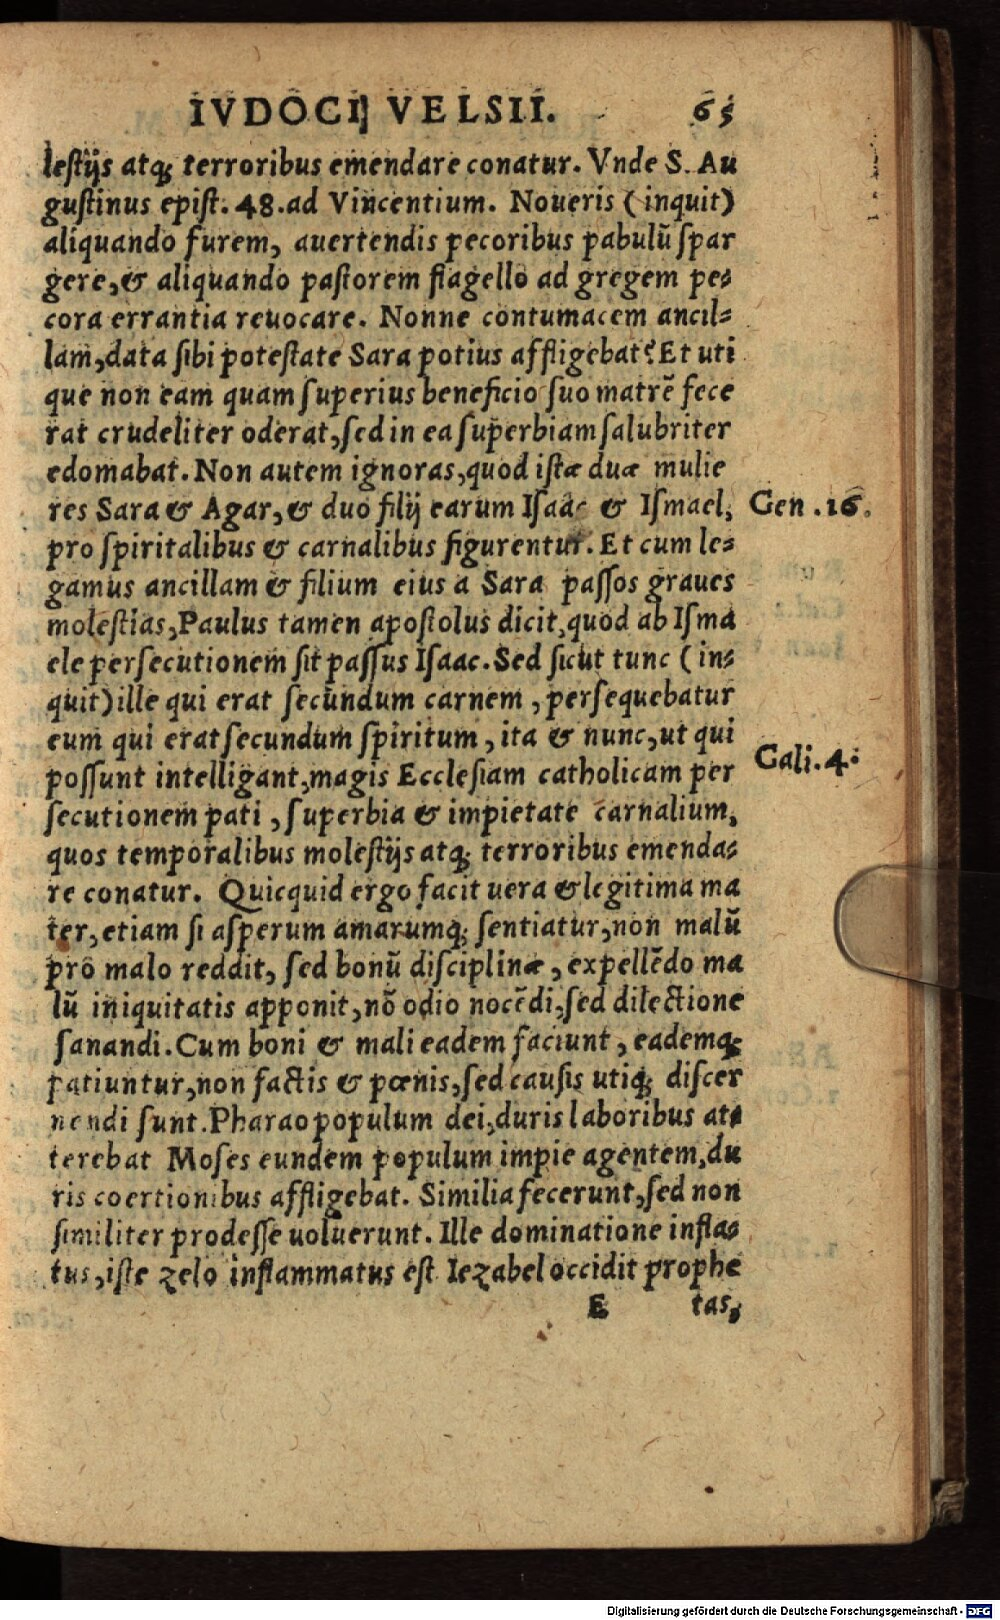 IVDOCI VELSII. 65
lestijs atq; terroribus emendare conatur. Vnde S. Au
gustinus epist. 48. ad Vincentium. Noueris (inquit)
aliquando furem, auertendis pecoribus pabulũ spar
gere, & aliquando pastorem flagello ad gregem pe=
cora errantia reuocare. Nonne contumacem ancil=
lam, data sibi potestate Sara potius affligebat? Et uti
que non eam quam superius beneficio suo matrẽ fece
rat crudeliter oderat, sed in ea superbiam salubriter
edomabat. Non autem ignoras, quod istæ duæ mulie
res Sara & Agar, & duo filij earum Isaac & Ismael,
Gen. 16.
pro spiritalibus & carnalibus figurentur. Et cum le=
gamus ancillam & filium eius a Sara passos graues
molestias, Paulus tamen apostolus dicit, quod ab Isma
ele persecutionem sit passus Isaac. Sed sicut tunc (in=
quit) ille qui erat secundum carnem, persequebatur
eum qui erat secundum spiritum, ita & nunc, ut qui
Gali. 4.
possunt intelligant, magis Ecclesiam catholicam per
secutionem pati, superbia & impietate carnalium,
quos temporalibus molestijs atq; terroribus emenda=
re conatur. Quicquid ergo facit uera & legitima ma
ter, etiam si asperum amarumq; sentiatur, non malũ
pro malo reddit, sed bonũ disciplinæ, expellẽdo ma
lũ iniquitatis apponit, nõ odio nocẽdi, sed dilectione
sanandi. Cum boni & mali eadem faciunt, eademq;
patiuntur, non factis & pœnis, sed causis utiq; discer
nendi sunt. Pharao populum dei, duris laboribus at=
terebat Moses eundem populum impie agentem, du
ris coertionibus affligebat. Similia fecerunt, sed non
similiter prodesse uoluerunt. Ille dominatione infla=
tus, iste zelo inflammatus est Iezabel occidit prophe
E tas,
Digitalisierung gefördert durch die Deutsche Forschungsgemeinschaft - DFG